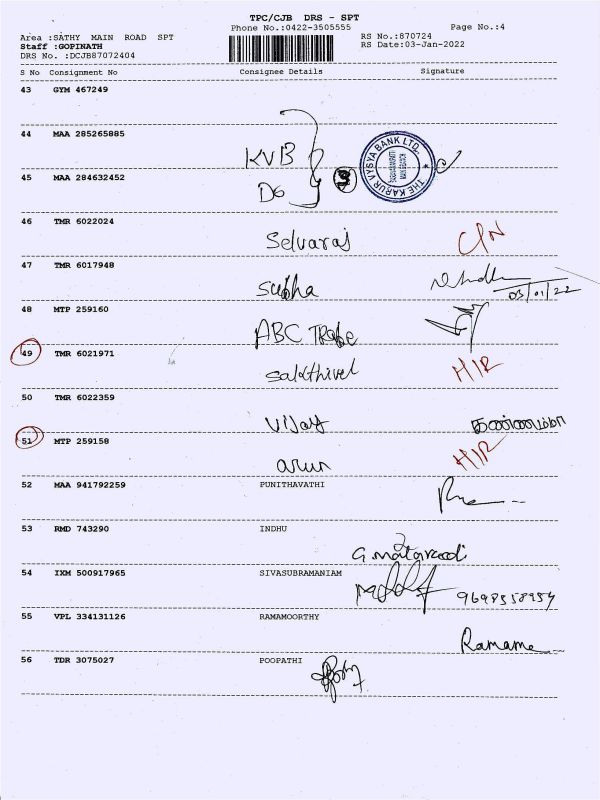 TPC/CJB DRS - SPT
Phone No.:0422-3505555 Page No.:4
Area :SATHY MAIN ROAD SPT RS No.:870724
Staff :GOPINATH RS Date:03-Jan-2022
DRS No. :DCJB87072404
S No Consignment No Consignee Details Signature
43 GYM 467249
44 MAA 285265885
KVB
THE KARUR VYSYA BANK LTD.
45 MAA 284632452
DG 3
46 TMR 6022024
Selvaraj C/N
47 TMR 6017948
Subha
03/01/22
48 MTP 259160
ABC Trade
49 TMR 6021971
Sakthivel H/R
50 TMR 6022359
Vijay
51 MTP 259158
arun H/R
52 MAA 941792259 PUNITHAVATHI
53 RMD 743290 INDHU
54 IXM 500917965 SIVASUBRAMANIAM
55 VPL 334131126 RAMAMOORTHY
56 TDR 3075027 POOPATHI